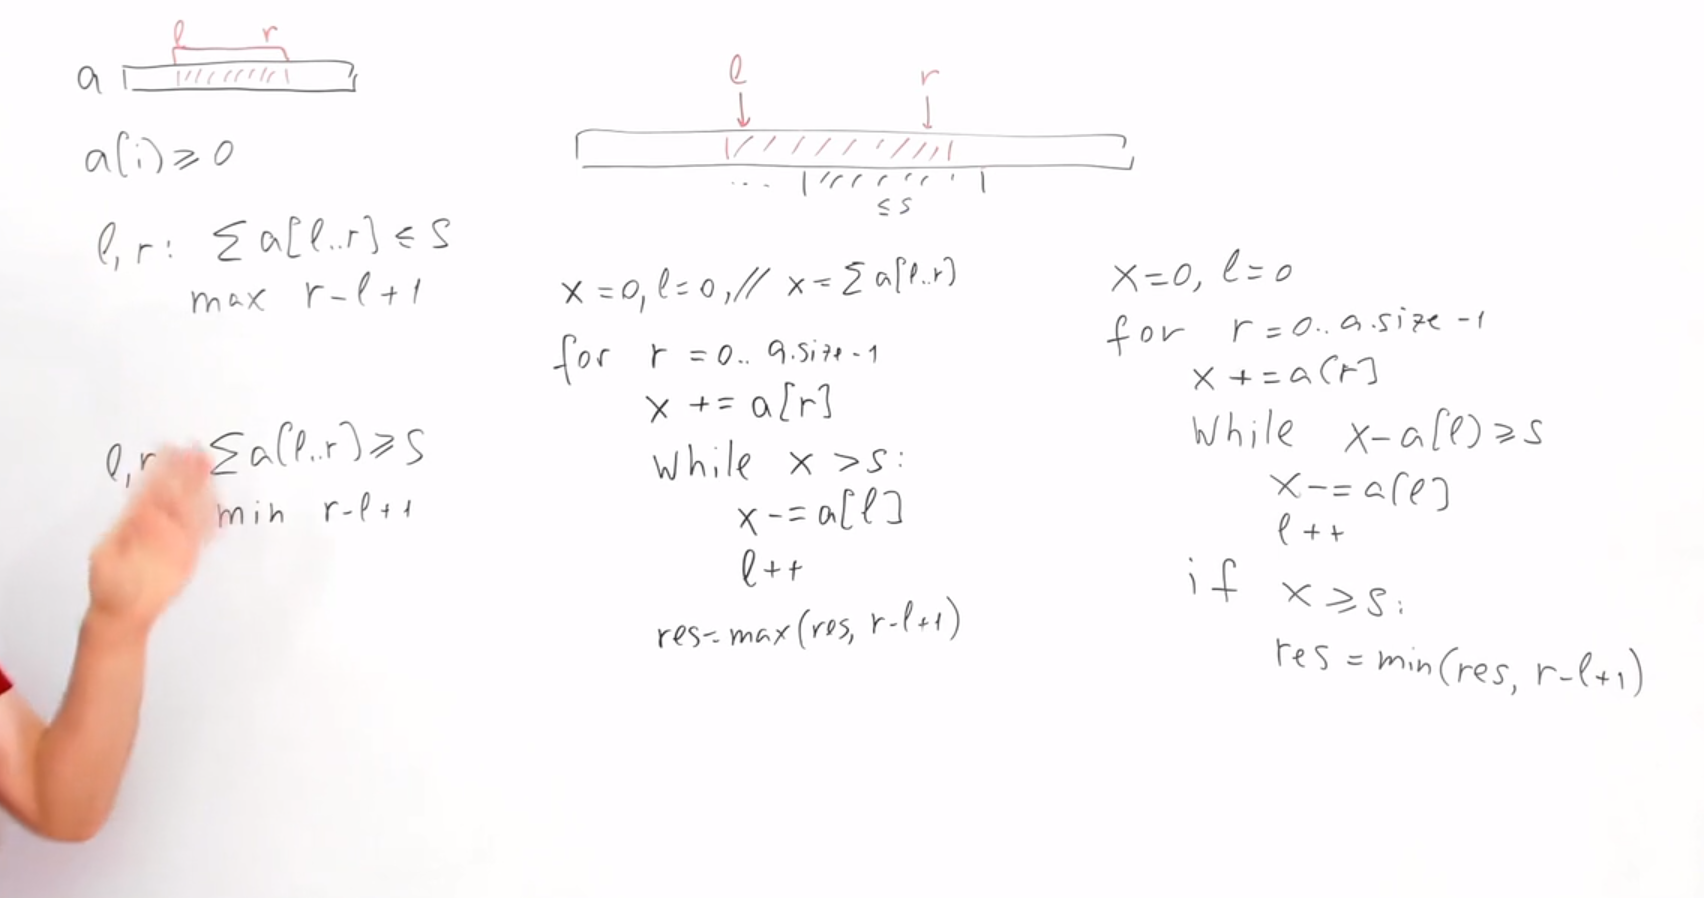 l r
a
a[i] ≥ 0
l, r: ∑ a[l..r] ≤ S
max r-l+1
l, r ∑ a[l..r] ≥ S
min r-l+1
l r
... ≤ S
x = 0, l = 0, // x = ∑ a[l..r]
for r = 0.. a.size-1
x += a[r]
while x > s:
x -= a[l]
l++
res = max(res, r-l+1)
x=0, l=0
for r = 0.. a.size-1
x += a[r]
while x-a[l] ≥ s
x -= a[l]
l++
if x ≥ s:
res = min(res, r-l+1)